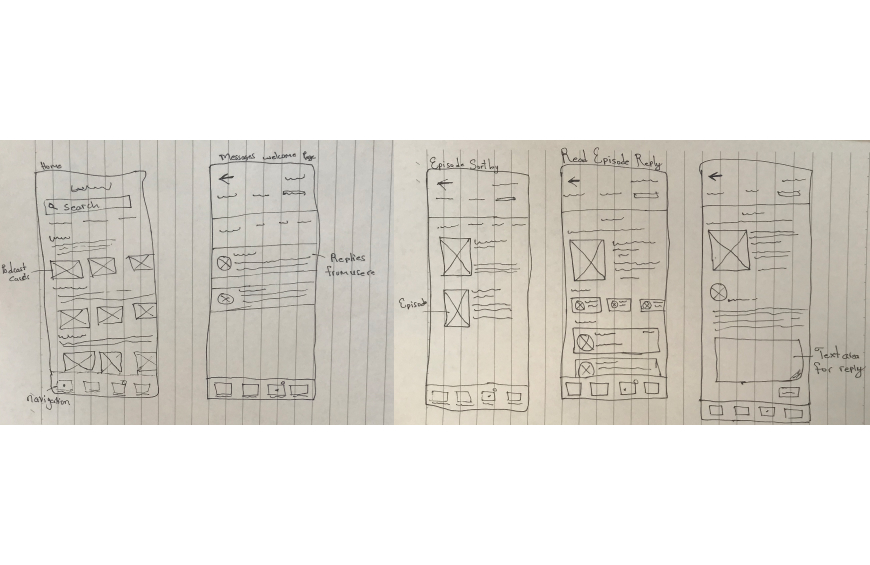 Home
search
Podcast
cards
Navigation
Messages welcome Page
Replies
from users
Episode Sort by
Episode
Read Episode Reply
Text area
for reply